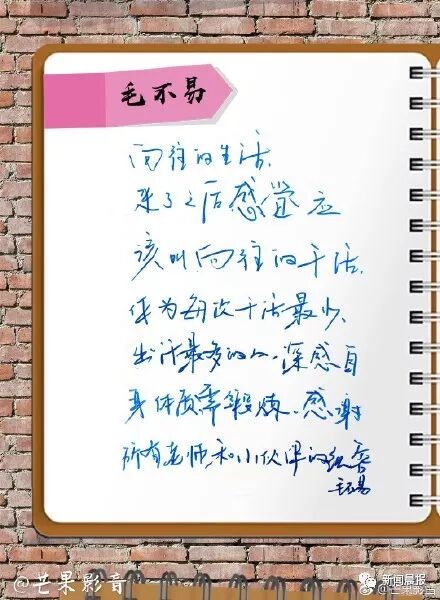 毛不易
向往的生活.
来了之后感觉应
该叫向往的干活.
作为每次干活最少、
出汗最多的人.深感自
身体质需锻炼.感谢
所有老师和小伙伴的包容
毛不易
@芒果影音
新闻晨报
@芒果影音